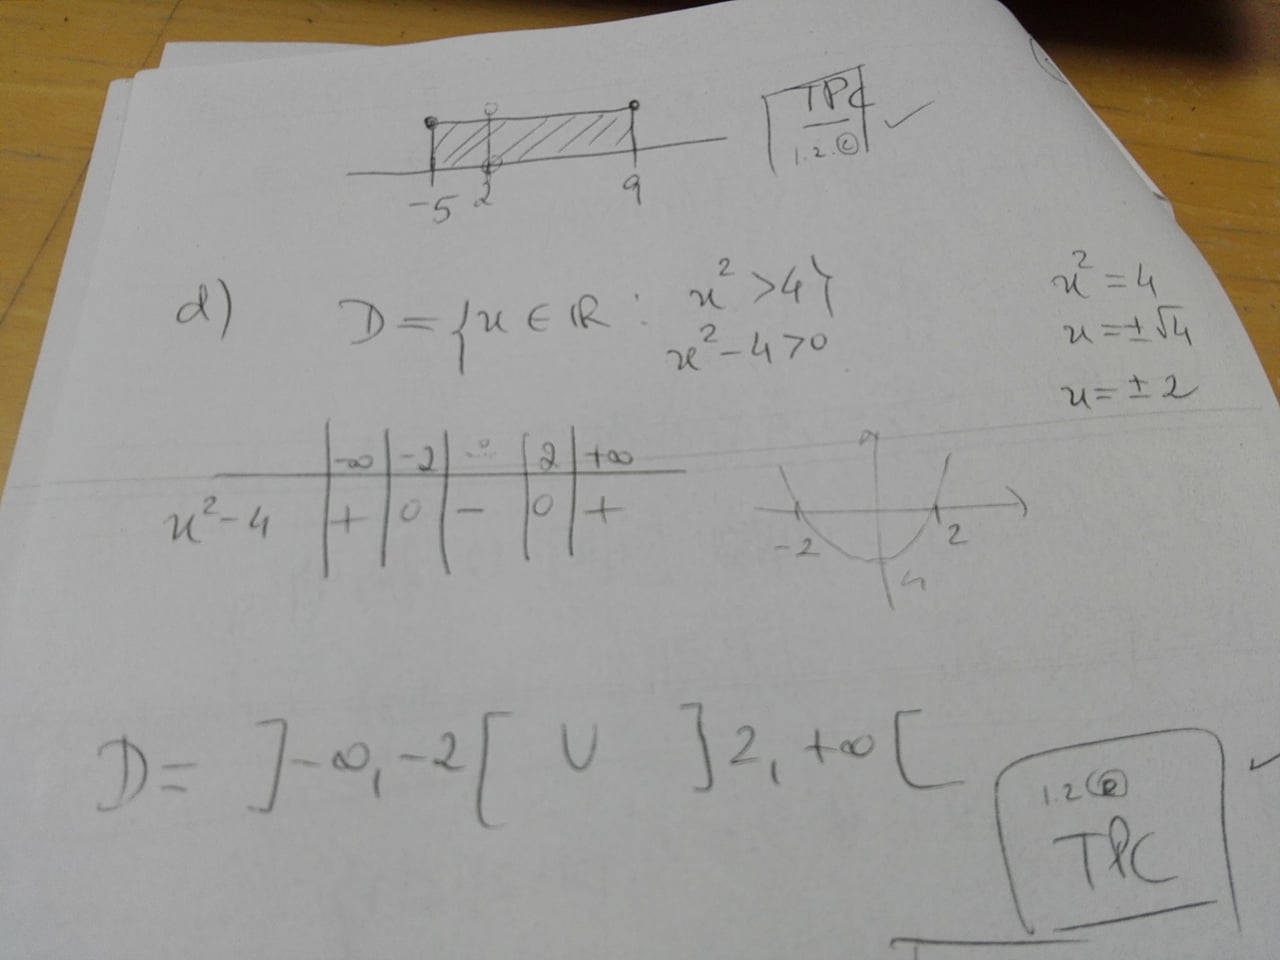 TPC
1.2.C
-5 2 9
d) D = {x ∈ ℝ : x² > 4}
x² - 4 > 0
x² = 4
x = ± √4
x = ± 2
-∞ | -2 | | 2 | +∞
x² - 4 | + | 0 | - | 0 | +
-2 2
D = ]-∞, -2[ ∪ ]2, +∞[
1.2
TPC